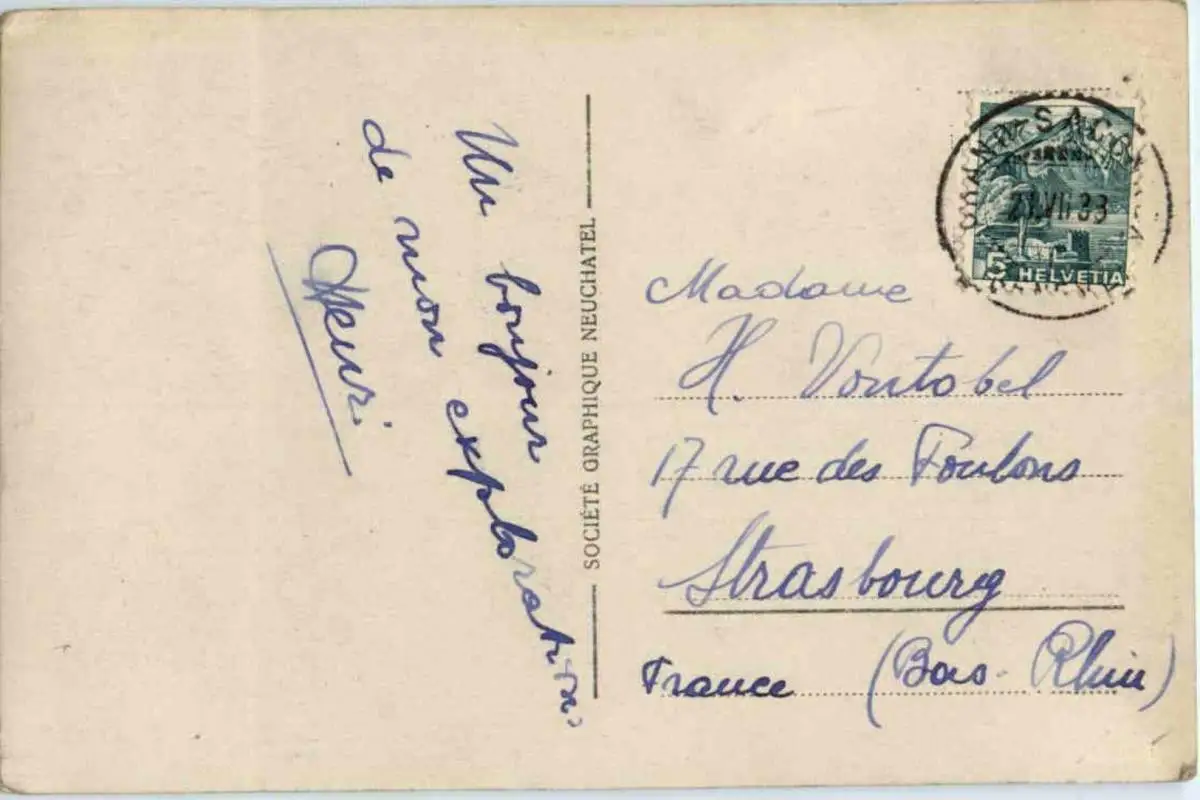 Un bonjour
de mon exploration.
Henri
SOCIÉTÉ GRAPHIQUE NEUCHATEL
5
HELVETIA
Madame
H. Vontobel
17 rue des Foulons
Strasbourg
France (Bas-Rhin)